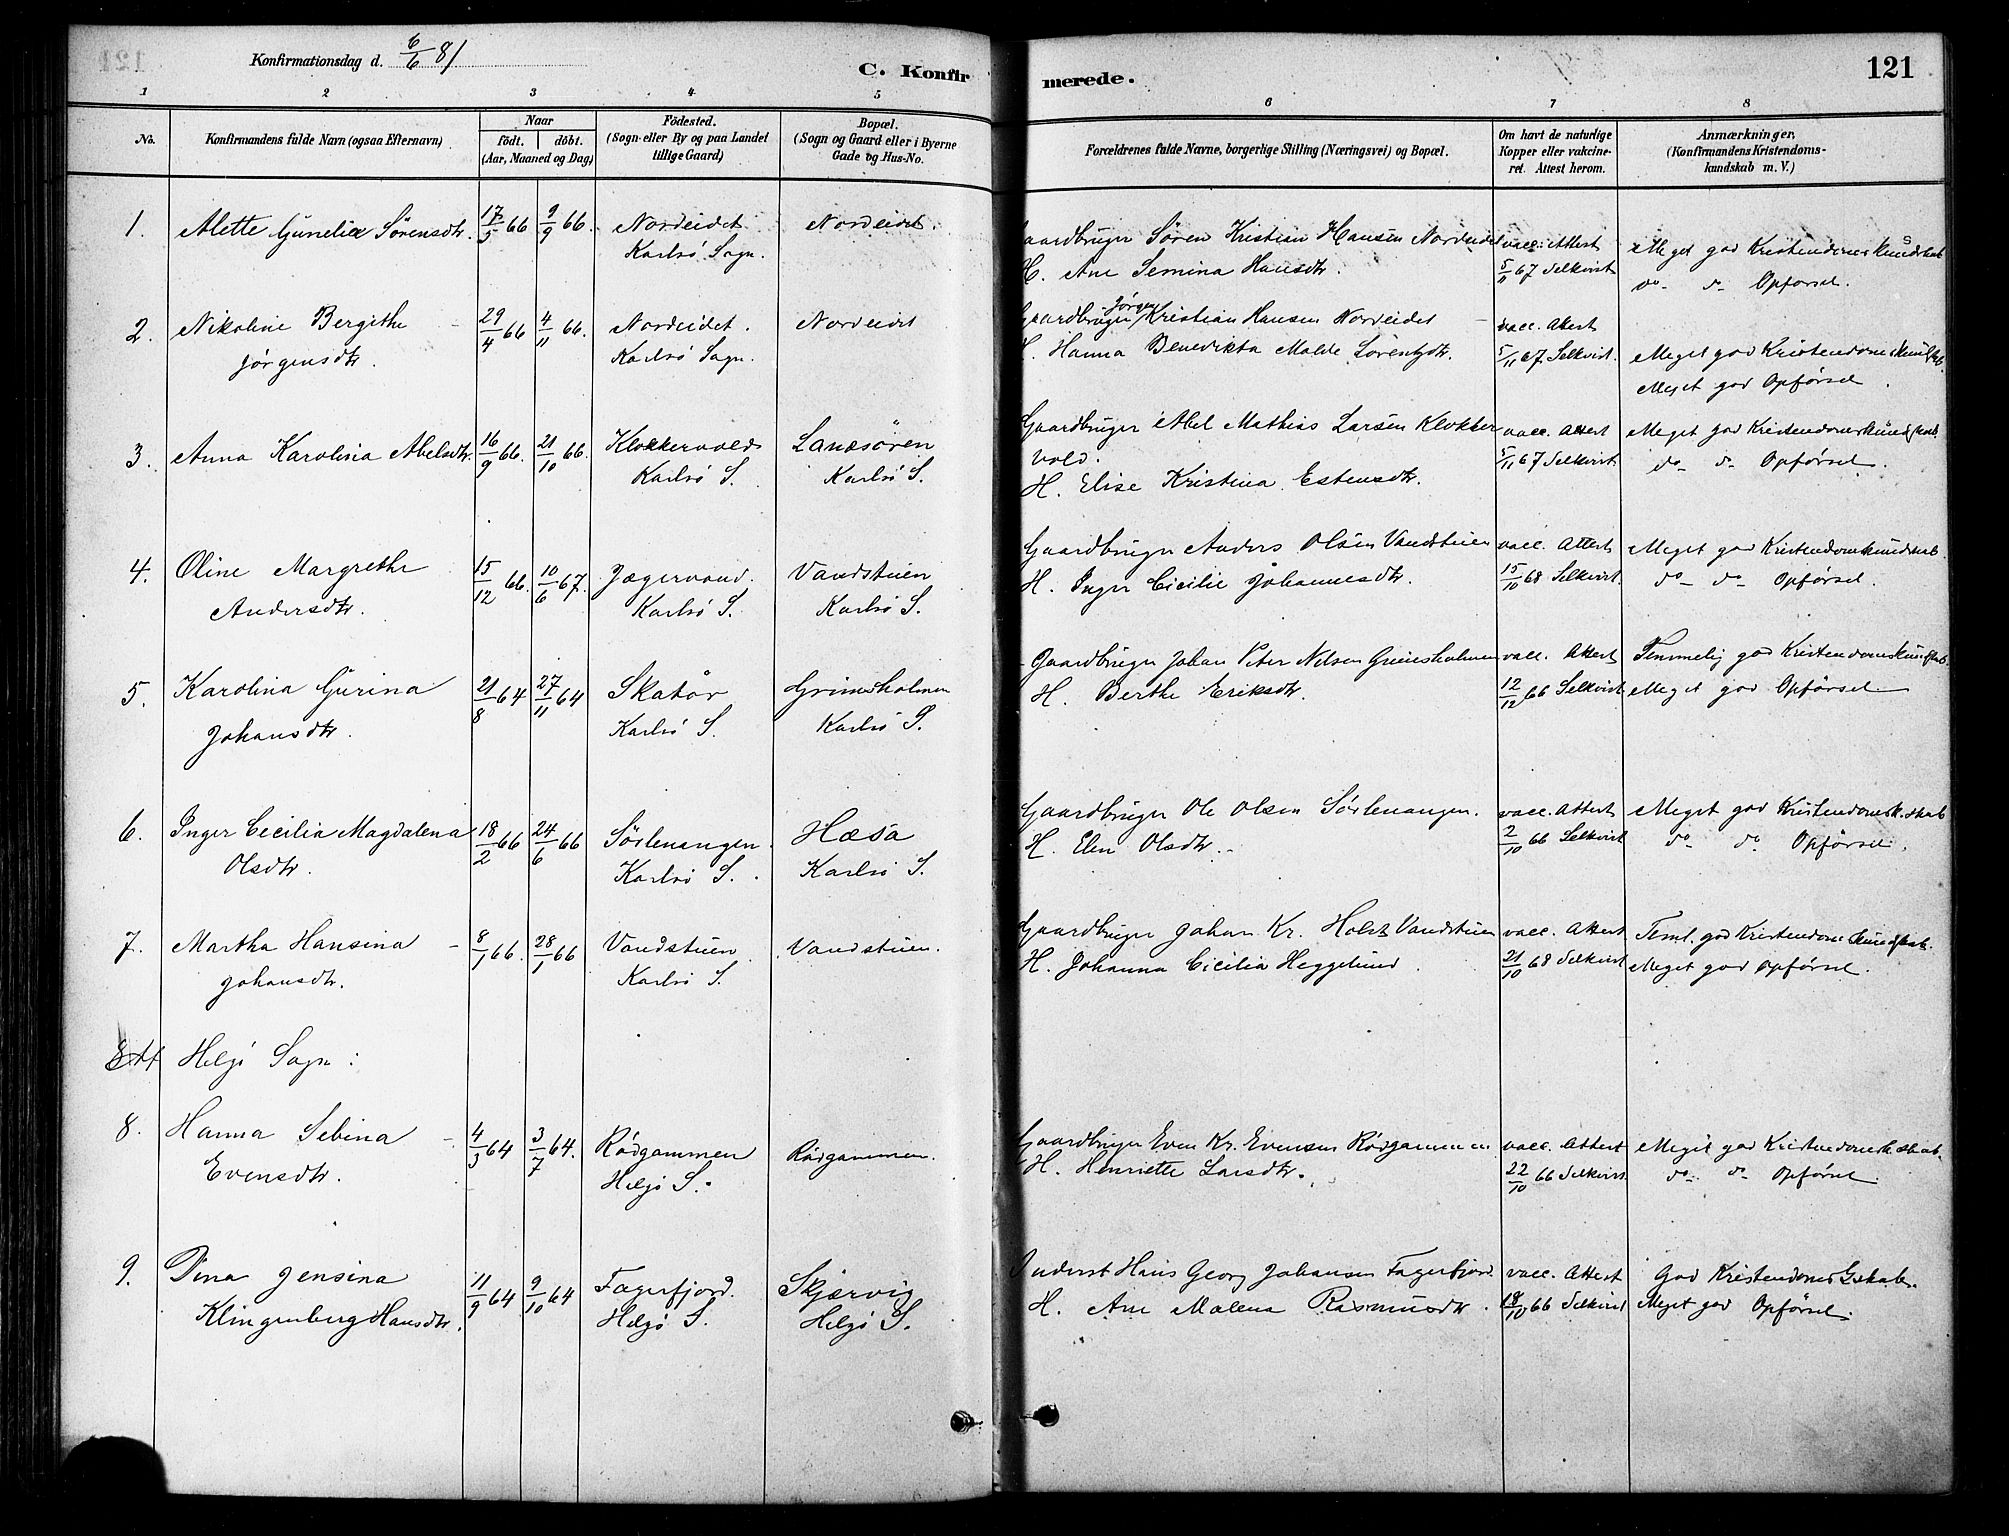 Konfirmationsdag d. 6/6 81
C. Konfirmerede.
121
1 2 3 4 5 6 7 8
No.
Konfirmandens fulde Navn (ogsaa Efternavn)
Naar
födt. döbt.
(Aar, Maaned og Dag)
Födested.
(Sogn eller By og paa Landet
tillige Gaard)
Bopæl.
(Sogn og Gaard eller i Byerne
Gade og Hus-No.
Forældrenes fulde Navne, borgerlige Stilling (Næringsvei) og Bopæl.
Om havt de naturlige
Kopper eller vakcine-
ret. Attest herom.
Anmærkninger,
(Konfirmandens Kristendoms-
kundskab m. V.)
1. Alette Gunelia Sörensdtr. 17/5 66 9/9 66. Nordeidet Nordeidet.
Karlsö Sogn.
Gaardbruger Sören Kristian Hansen Nordeidet vacc. Attest Meget god Kristendomskundskab
H. Ane Semina Hansdtr. 5/11 67 Selkvist do do Opförsel.
2. Nikoline Bergithe 29/4 66 4/11 66. Nordeidet. Nordeidet
Jörgensdtr. Karlsö Sogn.
Gaardbruger Jörgen Kristian Hansen Nordeidet vacc. Attest
H. Hanna Benedikta Malde Sörensdtr. 5/11 67 Selkvist. Meget god Kristendomskundskab.
Meget god Opförsel.
3. Anna Karolina Abelsdtr. 16/9 66. 21/10 66. Klokkervold Lanesören
Karlsö S. Karlsö S.
Gaardbruger Abel Mathias Larsen Klokker vacc. Attest Meget god Kristendomskundskab.
vold. 5/11 67 Selkvist do do Opförsel.
H. Elise Kristina Estensdtr.
4. Oline Margrethe 15/12 66. 10/6 67. Jægervand. Vandstuen
Andersdtr. Karlsö S. Karlsö S.
Gaardbruger Anders Olsen Vandstuen vacc. Attest Meget god Kristendomskundskab.
H. Inger Cicilie Johannesdtr. 15/10 68 Selkvist. do do Opförsel.
5. Karolina Gurina 21/8 64 27/11 64 Skatör Grimsholmen
Johansdtr. Karlsö S. Karlsö S.
Gaardbruger Johan Peter Nilsen Grimsholmen vacc. Attest Temmelig god Kristendomskundskab.
H. Berthe Eriksdtr. 12/12 66 Selkvist Meget god Opförsel.
6. Inger Cecilia Magdalena 18/2 66 24/6 66 Sörlenangen. Hæsa
Olsdtr. Karlsö S. Karlsö S.
Gaardbruger Ole Olsen Sörlenangen. vacc. Attest Meget god Kristendomsk.skab
H. Elen Olsdtr. 2/10 66 Selkvist do do Opförsel.
7. Martha Hansina 8/1 66. 28/1 66 Vandstuen Vandstuen.
Johansdtr. Karlsö S.
Gaardbruger Johan Kr. Holst Vandstuen vacc. Attest Teml. god Kristendomskundskab.
H. Johanna Cicilia Heggelund. 21/10 68 Selkvist Meget god Opförsel.
Helgö Sogn:
8. Hanna Sebina 4/5 64 3/7 64. Rödgammen Rödgammen.
Evensdtr. Helgö S.
Gaardbruger Even Kr. Evensen Rödgammen vacc. Attest Meget god Kristendomsk.skab.
H. Henriette Larsdtr. 22/10 66 Selkvist. do do Opförsel.
9. Dina Jensina 11/9 64 9/10 64 Fagerfjord. Skjærvig
Klingenberg Hansdtr. Helgö S. Helgö S.
Inderst Hans Georg Johansen Fagerfjord. vacc. Attest God Kristendomsk.skab.
H. Ane Malena Rasmusdtr. 18/10 66 Selkvist Meget god Opförsel.